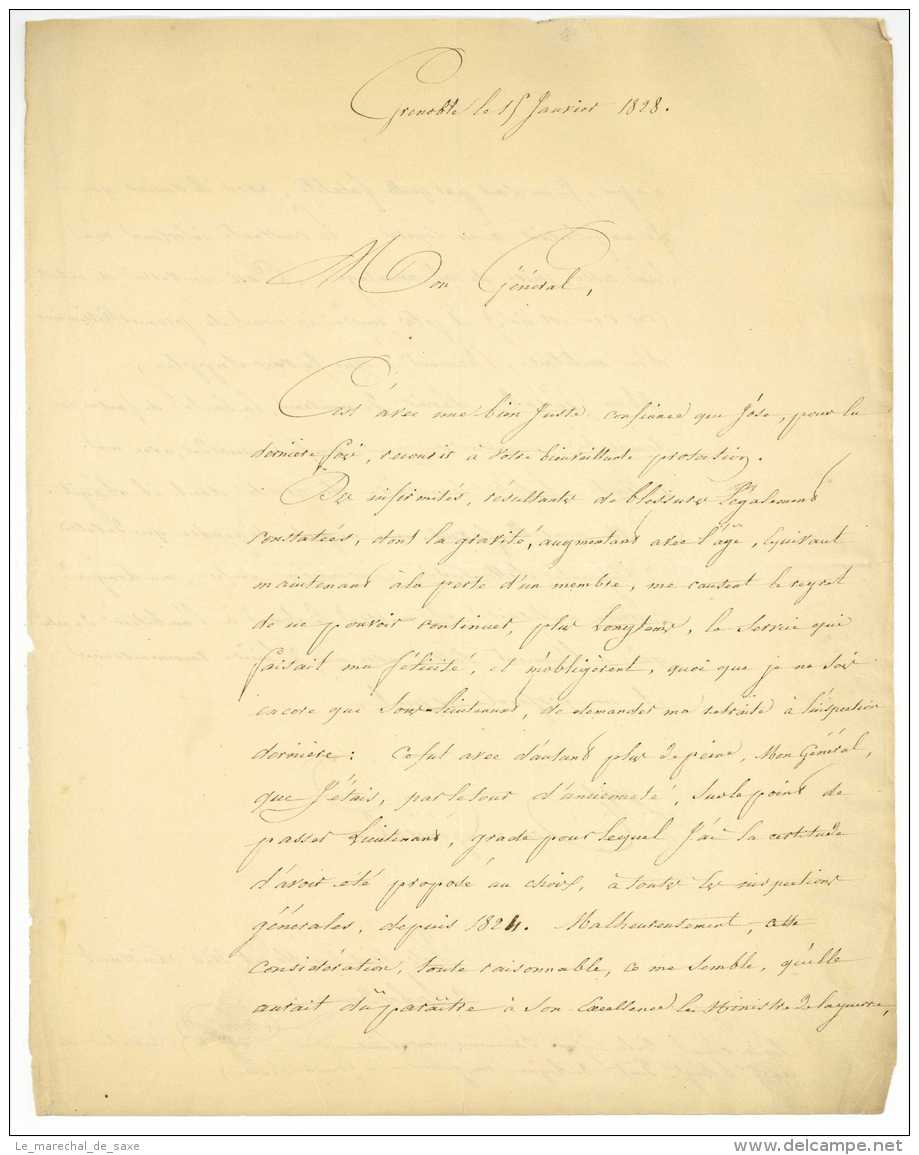 Grenoble le 15 Janvier 1828.
Mon Général,
C'est avec une bien Juste confiance que J'ose, pour la
dernière fois, recourir à votre bienveillante protection.
Des infirmités, résultantes de blessures légalement
constatées, dont la gravité, augmentant avec l'âge, Equivaut
maintenant à la perte d'un membre, me causent le regret
de ne pouvoir continuer, plus Longtems, le service qui
faisait ma félicité, et m'obligèrent, quoi que je ne sois
encore que Sous-Lieutenant, de demander ma retraite à l'inspection
dernière: Ce fut avec d'autant plus de peine, Mon Général,
que J'étais, par le tour d'ancienneté, sur le point de
passer Lieutenant, grade pour lequel J'ai la certitude
d'avoir été proposé au choix, à toutes les inspections
générales, depuis 1824. Malheureusement, cette
considération, toute raisonnable, ce me semble, qu'elle
aurait dû paraître à Son Excellence le Ministre de la guerre,
Le_marechal_de_saxe
www.delcampe.net